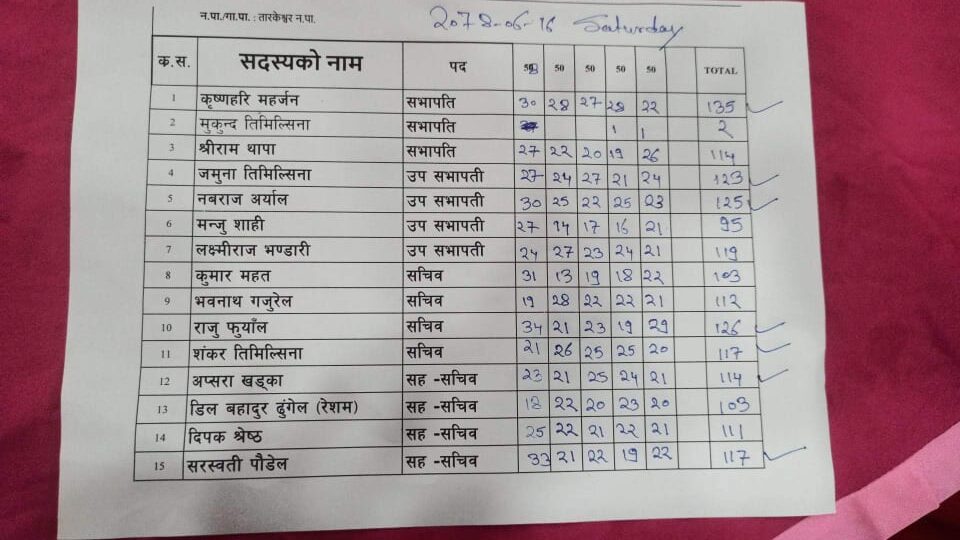 न.पा./गा.पा. : तारकेश्वर न.पा.
2078-06-16 Saturday
क.स. सदस्यको नाम पद 50 50 50 50 50 TOTAL
1 कृष्णहरि महर्जन सभापति 30 28 27 28 22 135
2 मुकुन्द तिमिल्सिना सभापति 1 1 2
3 श्रीराम थापा सभापति 27 22 20 19 26 114
4 जमुना तिमिल्सिना उप सभापती 27 24 27 21 24 123
5 नबराज अर्याल उप सभापती 30 25 22 25 23 125
6 मन्जु शाही उप सभापती 27 14 17 16 21 95
7 लक्ष्मीराज भण्डारी उप सभापती 24 27 23 24 21 119
8 कुमार महत सचिव 31 13 19 18 22 103
9 भवनाथ गजुरेल सचिव 19 28 22 22 21 112
10 राजु फुयाँल सचिव 34 21 23 19 29 126
11 शंकर तिमिल्सिना सचिव 21 26 25 25 20 117
12 अप्सरा खड्का सह -सचिव 23 21 25 24 21 114
13 डिल बहादुर ढुंगेल (रेशम) सह -सचिव 18 22 20 23 20 103
14 दिपक श्रेष्ठ सह -सचिव 25 22 21 22 21 111
15 सरस्वती पौडेल सह -सचिव 33 21 22 19 22 117